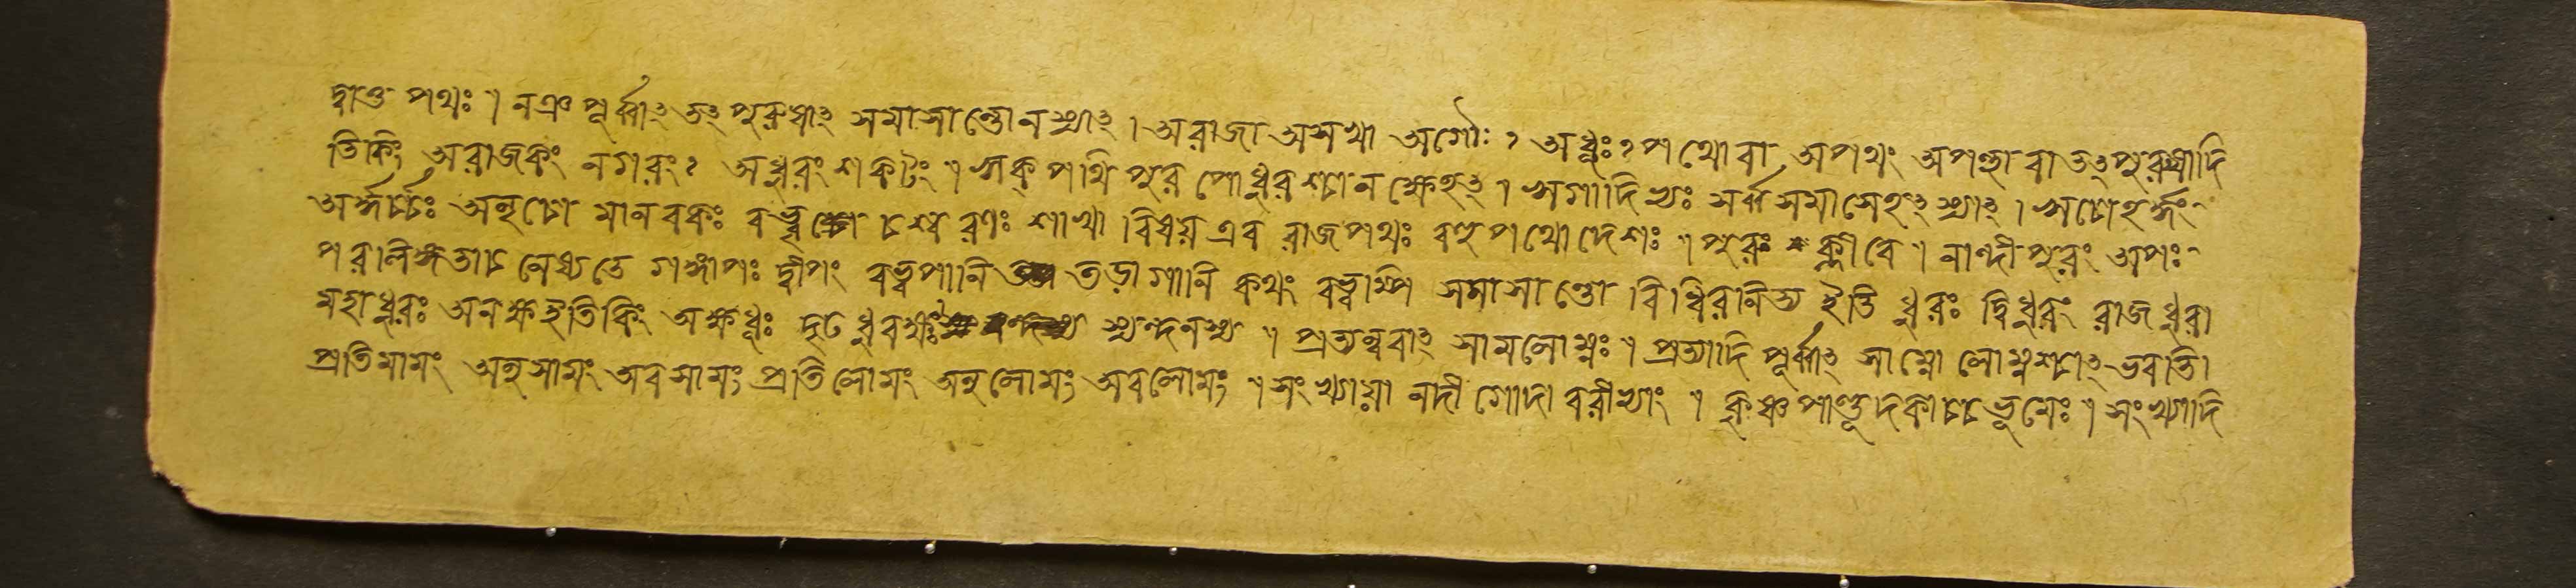 দ্বাত্ত পথঃ । নঞ পূর্ব্বাৎ তৎপুরুষাৎ সমাসান্তোনস্যাৎ । অরাজা অসখা অগৌঃ ? অধূঃ ? পথোবা অপথং অপন্থাবা তৎপুরুষাদি
তিকিং অরাজকং নগরং ? অধুরং শকটং । ঋক্ পথি পুর পোধুরশ্চানক্ষেহৎ । ঋগাদিভ্যঃ সর্ব্বসমাসেহৎ স্যাৎ । ঋচোহর্দ্ধং
অর্দ্ধর্চ্চঃ অনৃচো মানবকঃ বহ্বৃচশ্চরণঃ শাখা বিষয় এব রাজপথঃ বহুপথোদেশঃ । পুরঃ ক্লীবে । নান্দীপুরং অপঃ
পরলিঙ্গতাচ নেষ্যতে গাঙ্গাপঃ দ্বীপং বহ্বপানি তড়াগানি কথং বহ্বাম্পি সমাসান্তো বিধিরনিত্য ইতি ধুরঃ দ্বিধুরং রাজধুরা
মহাধুরঃ অনক্ষইতিকিং অক্ষধূঃ দৃঢধুরক্ষঃ স্যন্দনস্য । প্রত্যন্ববাৎ সামলোম্নঃ । প্রত্যাদি পূর্ব্বাৎ সাম্নো লোম্নশ্চাৎ ভবতি ।
প্রতিসামং অনুসামং অবসামং প্রতিলোমং অনুলোমং অবলোমং । সংখ্যায়া নদী গোদাবরীভ্যাং । কৃষ্ণপাণ্ডূদকাচ্চ ভূমেঃ । সংখ্যাদি